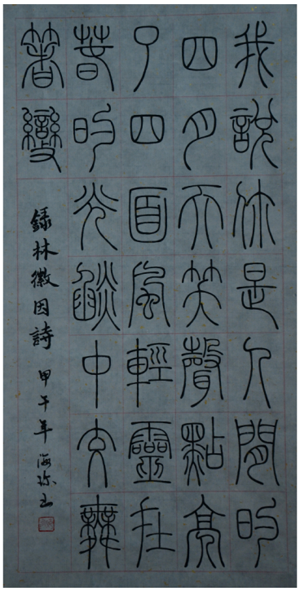 我說你是人間的
四月天笑聲點亮
了四面風輕靈在
春的光燄中交舞
箸變
錄林徽因詩 甲午年